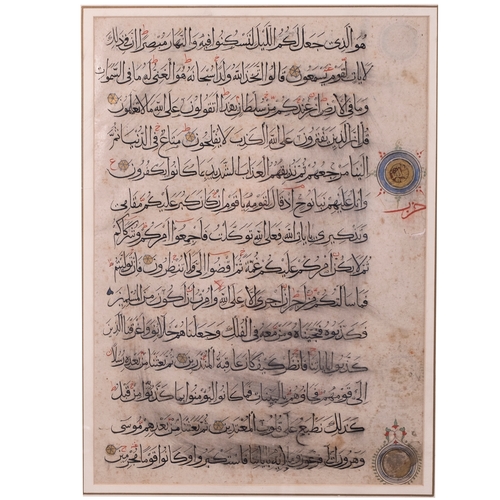 هو الذي جعل لكم الليل لتسكنوا فيه والنهار مبصرا إن في ذلك
لآيات لقوم يسمعون قالوا اتخذ الله ولدا سبحانه هو الغني له ما في السموات
وما في الأرض إن عندكم من سلطان بهذا أتقولون على الله ما لا تعلمون
قل إن الذين يفترون على الله الكذب لا يفلحون متاع في الدنيا ثم
إلينا مرجعهم ثم نذيقهم العذاب الشديد بما كانوا يكفرون
واتل عليهم نبأ نوح إذ قال لقومه يا قوم إن كان كبر عليكم مقامي
وتذكيري بآيات الله فعلى الله توكلت فأجمعوا أمركم وشركاءكم
ثم لا يكن أمركم عليكم غمة ثم اقضوا إلي ولا تنظرون فإن توليتم
فما سألتكم من أجر إن أجري إلا على الله وأمرت أن أكون من المسلمين
فكذبوه فنجيناه ومن معه في الفلك وجعلناهم خلائف وأغرقنا الذين
كذبوا بآياتنا فانظر كيف كان عاقبة المنذرين ثم بعثنا من بعده رسلا
إلى قومهم فجاؤهم بالبينات فما كانوا ليؤمنوا بما كذبوا به من قبل
كذلك نطبع على قلوب المعتدين ثم بعثنا من بعدهم موسى
وهرون إلى فرعون وملئه بآياتنا فاستكبروا وكانوا قوما مجرمين
حزب